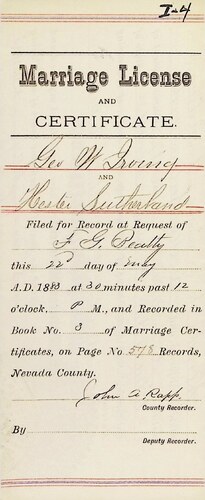 I-4
Marriage License
AND
CERTIFICATE.
Geo W Irving
AND
Hester Sutherland
Filed for Record at Request of
F. G. Beatty
this 22d day of May
A.D. 1883 at 30 minutes past 12
o'clock, P M., and Recorded in
Book No. 3 of Marriage Cer-
tificates, on Page No 578 Records,
Nevada County.
John A Rapp
County Recorder.
By
Deputy Recorder.